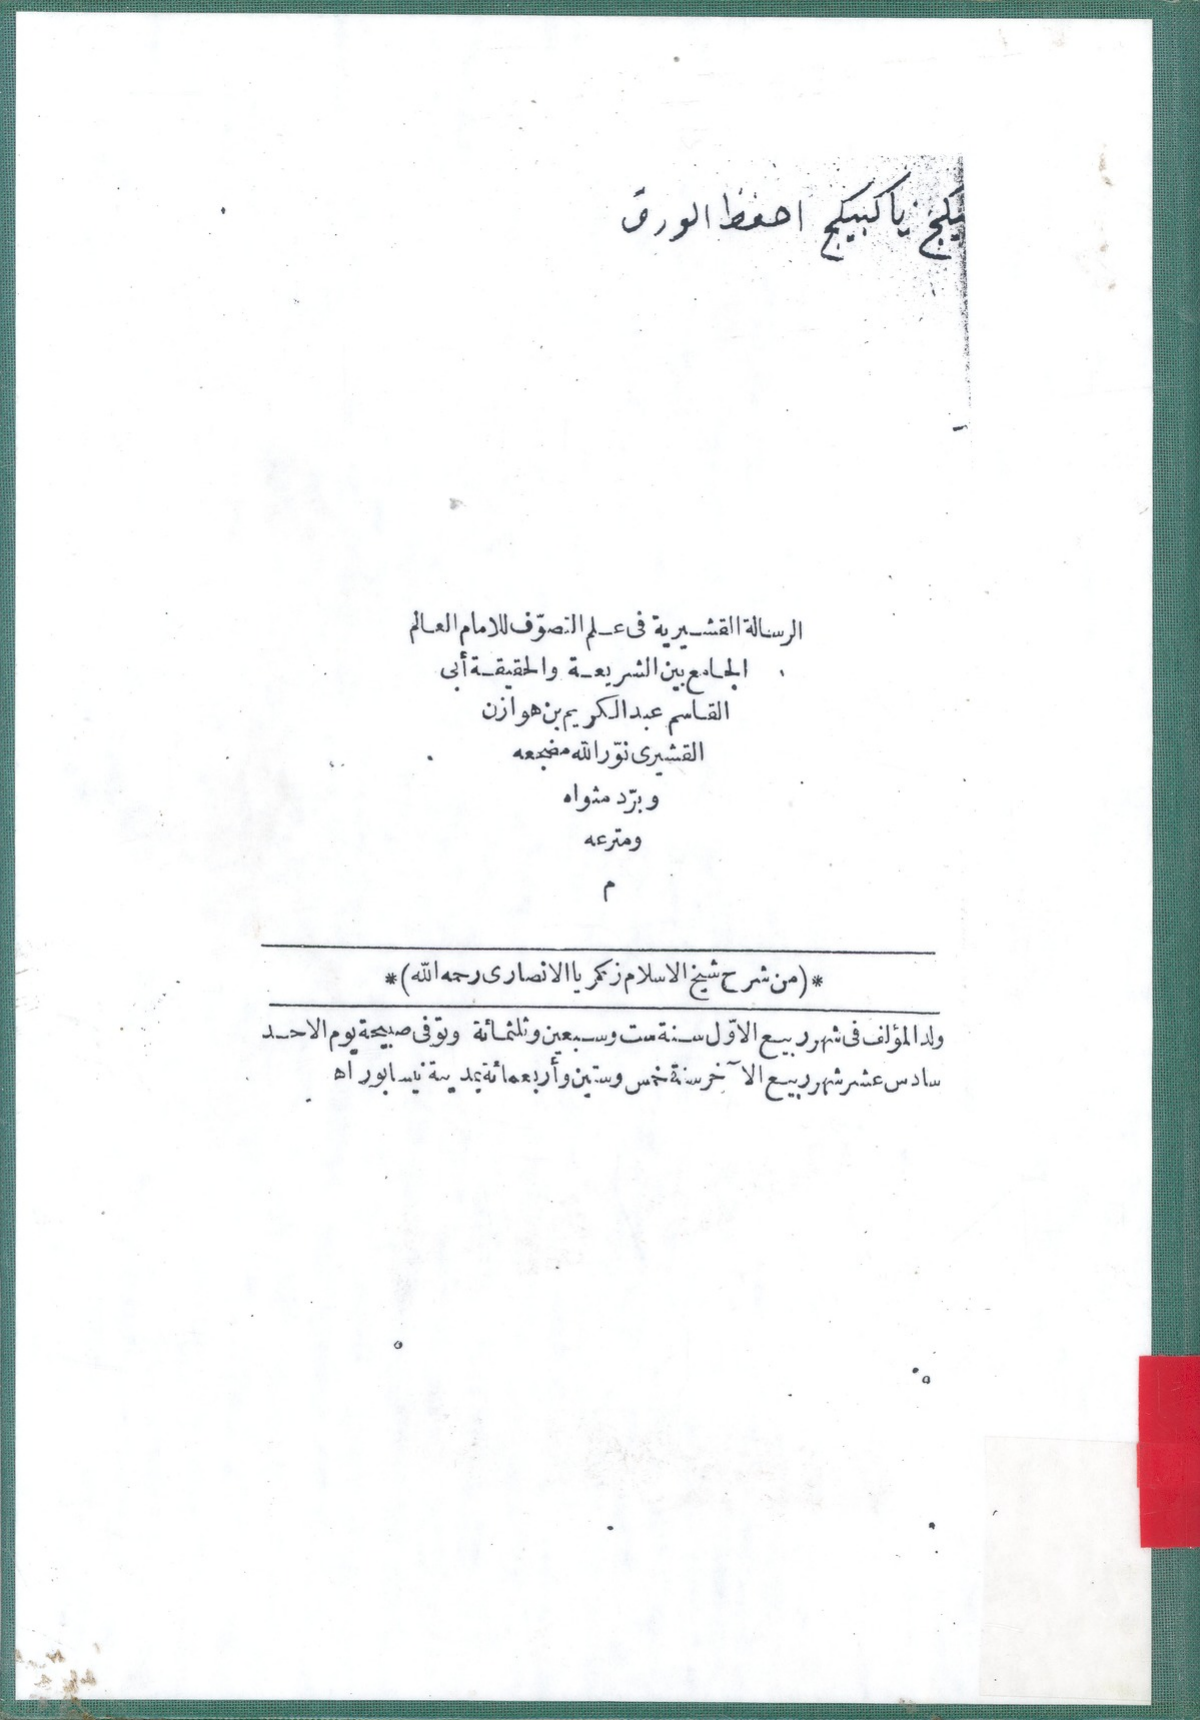 يا كبيكج احفظ الورق
الرسالة القشيرية فى علم التصوّف للامام العالم
الجامع بين الشريعة والحقيقة أبى
القاسم عبد الكريم بن هوازن
القشيرى نوّر الله مضجعه
وبرّد مثواه
ومترعه
م
*(من شرح شيخ الاسلام زكريا الانصارى رحمه الله)*
ولد المؤلف فى شهر ربيع الاوّل سنة ست وسبعين وثلثمائة وتوفى صبيحة يوم الاحد
سادس عشر شهر ربيع الآخر سنة خمس وستين وأربعمائة بمدينة نيسابور اه